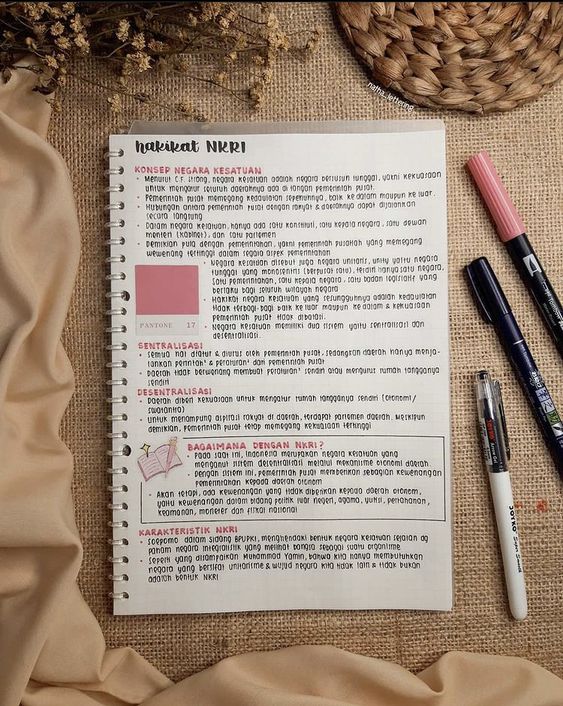 hakikat NKRI
KONSEP NEGARA KESATUAN
• Menurut C.F. Strong, negara kesatuan adalah negara bersusun tunggal, yakni kekuasaan
untuk mengatur seluruh daerahnya ada di tangan pemerintah pusat.
• Pemerintah pusat memegang kedaulatan sepenuhnya, baik ke dalam maupun ke luar.
• Hubungan antara pemerintah pusat dengan rakyat & daerahnya dapat dijalankan
secara langsung
• Dalam negara kesatuan, hanya ada satu konstitusi, satu kepala negara, satu dewan
menteri (kabinet), dan satu parlemen
• Demikian pula dengan pemerintahan, yakni pemerintah pusatlah yang memegang
wewenang tertinggi dalam segala aspek pemerintahan
• Negara kesatuan disebut juga negara unitaris, unity yaitu negara
tunggal yang monosentris (berpusat satu), terdiri hanya satu negara,
satu pemerintahan, satu kepala negara, satu badan legislatif yang
berlaku bagi seluruh wilayah negara
• Hakikat negara kesatuan yang sesungguhnya adalah kedaulatan
tidak terbagi bagi baik ke luar maupun ke dalam & kekuasaan
pemerintah pusat tidak dibatasi.
• Negara kesatuan memiliki dua sistem yaitu sentralisasi dan
desentralisasi.
PANTONE 17
SENTRALISASI
• Semua hal diatur & diurus oleh pemerintah pusat, sedangkan daerah hanya menja-
lankan perintah² & peraturan² dari pemerintah pusat
• Daerah tidak berwenang membuat peraturan² sendiri atau mengurus rumah tangganya
sendiri
DESENTRALISASI
• Daerah diberi kekuasaan untuk mengatur rumah tangganya sendiri (otonomi /
swatantra)
• Untuk menampung aspirasi rakyat di daerah, terdapat parlemen daerah. Meskipun
demikian, pemerintah pusat tetap memegang kekuasaan tertinggi
BAGAIMANA DENGAN NKRI?
• Pada saat ini, Indonesia merupakan negara kesatuan yang
menganut sistem desentralisasi melalui mekanisme otonomi daerah.
• Dengan sistem ini, pemerintah pusat memberikan sebagian kewenangan
pemerintahan kepada daerah otonomi
• Akan tetapi, ada kewenangan yang tidak diberikan kepada daerah otonom,
yaitu kewenangan dalam bidang politik luar negeri, agama, yustisi, pertahanan,
keamanan, moneter dan fiskal nasional
KARAKTERISTIK NKRI
• Soepomo dalam sidang BPUPKI, menghendaki bentuk negara kesatuan sejalan dg
paham negara integralistik yang melihat bangsa sebagai suatu organisme
• Seperti yang disampaikan Muhammad Yamin, bahwa kita hanya membutuhkan
negara yang bersifat unitarisme & wujud negara kita tidak lain & tidak bukan
adalah bentuk NKRI
natha_lettering